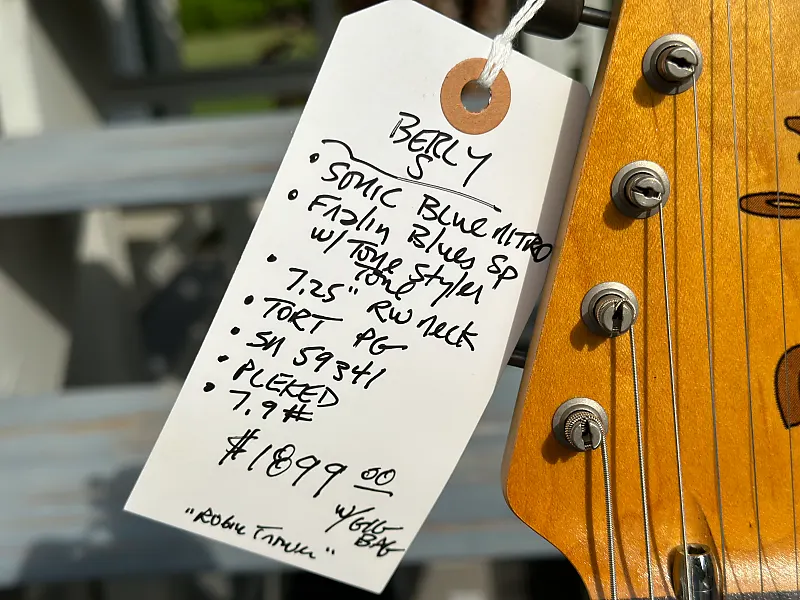 BERLY
S
• SONIC BLUE NITRO
• Fralin Blues SP
w/ Tone Styler
Tone
• 7.25" RW neck
• TORT PG
• SN 59341
• PLEKED
• 7.9#
$1899.00
w/GIG
BAG
"ROBIN TROWER"